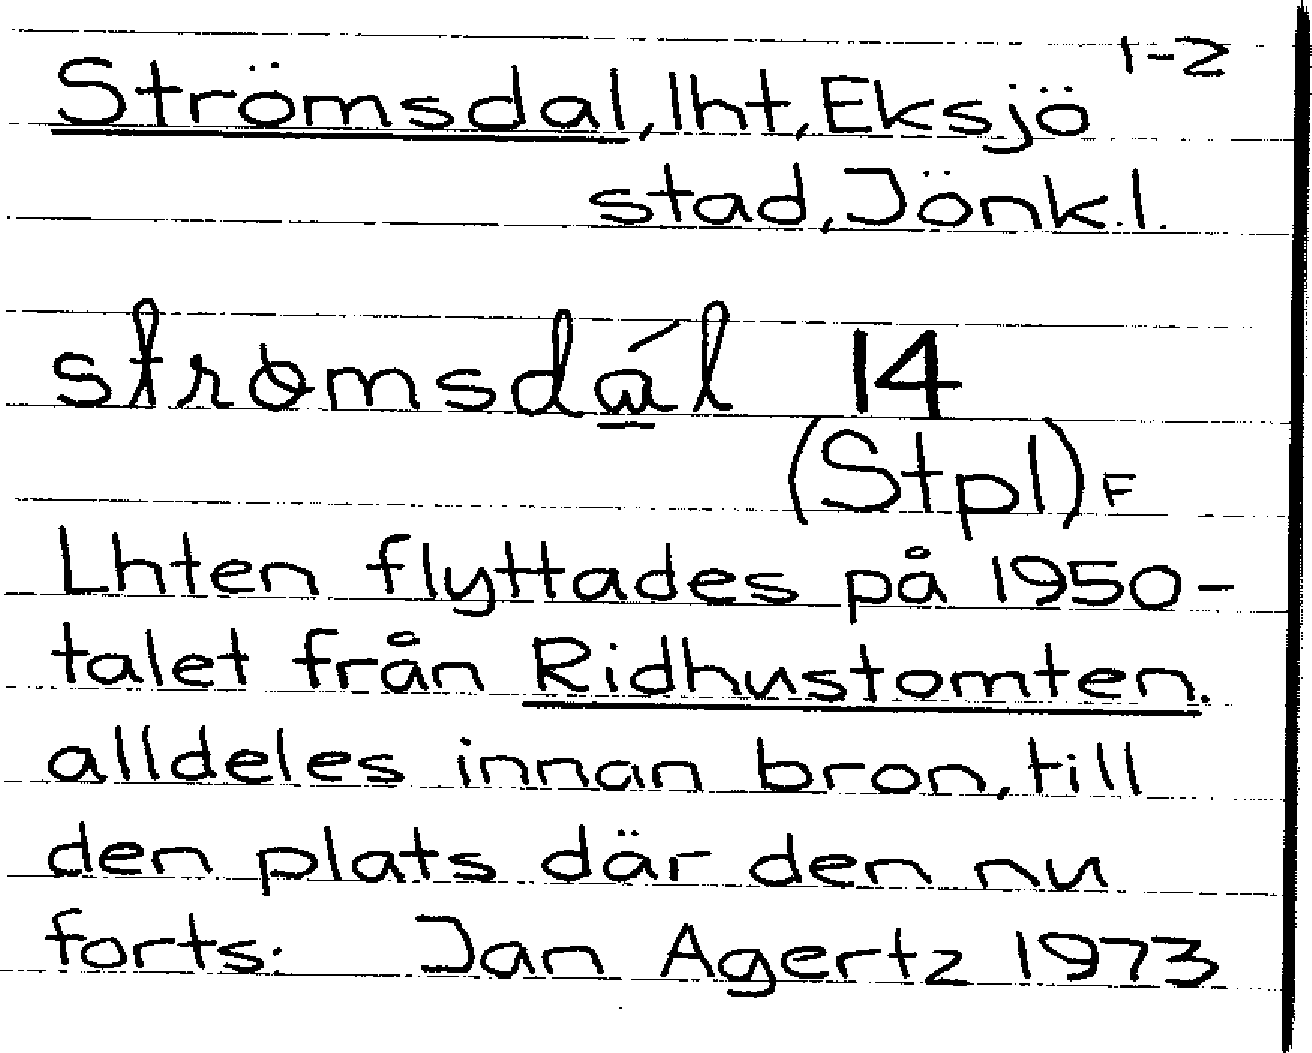 1-2
Strömsdal, lht, Eksjö
stad, Jönk.l.
14
(Stpl) F
Lhten flyttades på 1950-
talet från Ridhustomten.
alldeles innan bron, till
den plats där den nu
forts: Jan Agertz 1973